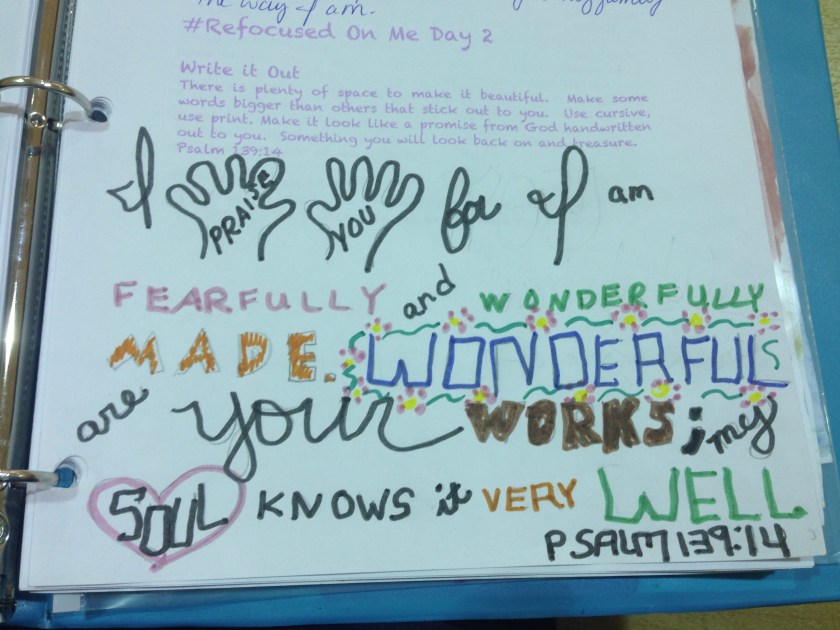 the way I am.
family
#Refocused On Me Day 2
Write it Out
There is plenty of space to make it beautiful. Make some
words bigger than others that stick out to you. Use cursive,
use print. Make it look like a promise from God handwritten
out to you. Something you will look back on and treasure.
Psalm 139:14
I PRAISE YOU for I am
FEARFULLY and WONDERFULLY
MADE. WONDERFUL
are your WORKS; my
SOUL KNOWS it VERY WELL
PSALM 139:14